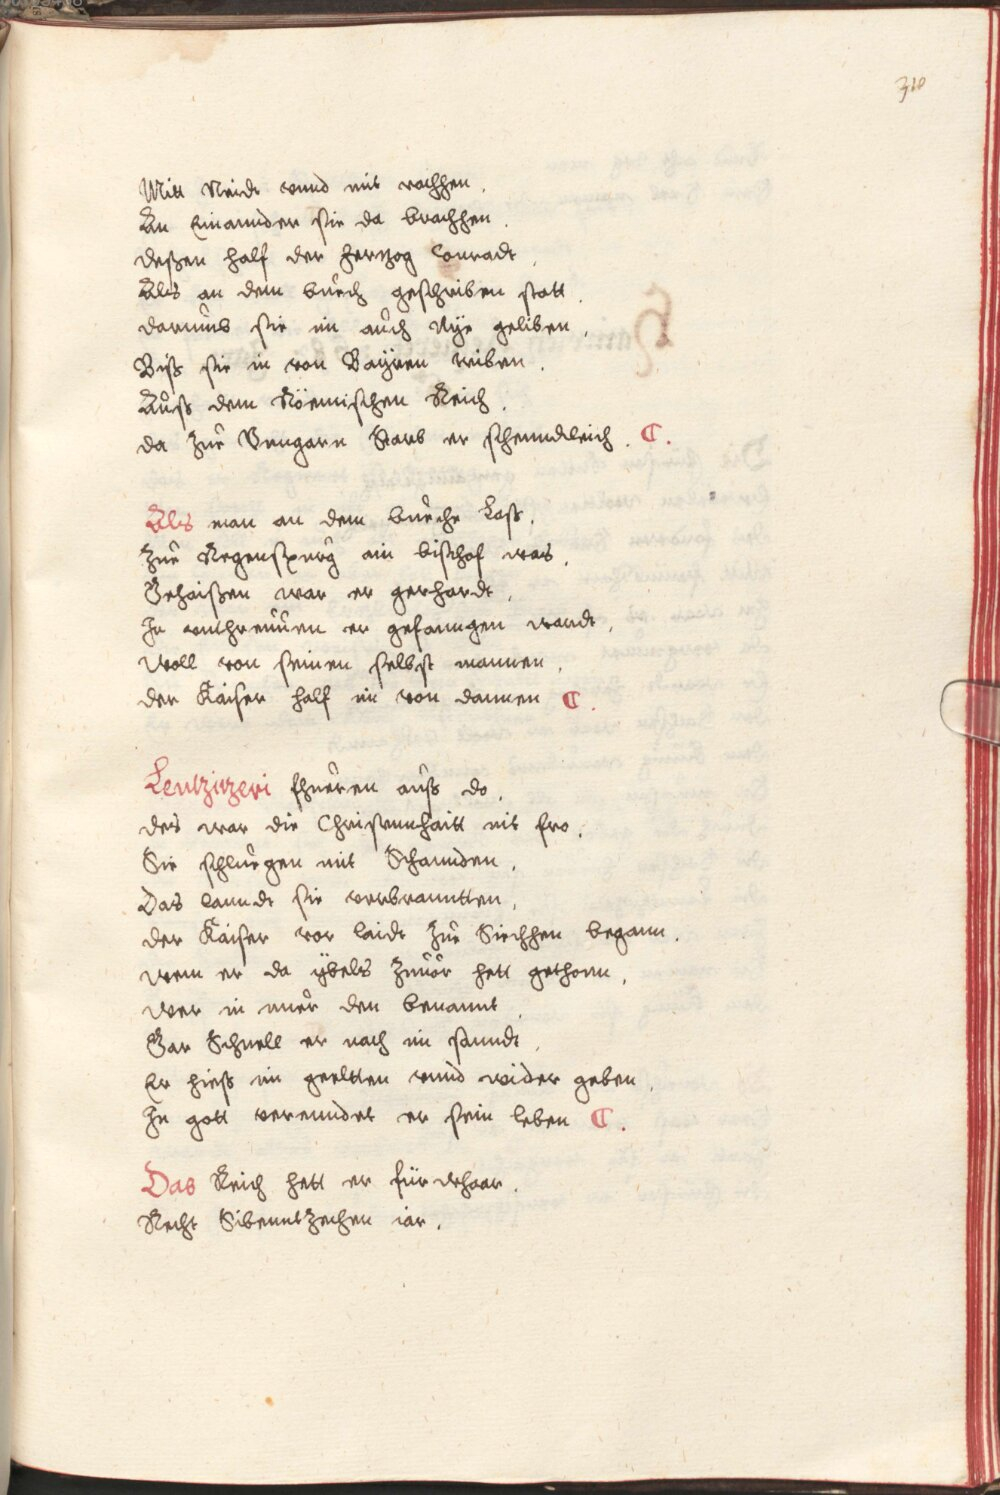 310
Mitt Neidt vnnd mit rachhen.
An Einannder sie da brachhen.
deßen half der Hertzog Conradt.
Als an dem buech geschriben statt.
darumb sie im auch Nÿe geliben.
Biß sie in von Baÿren triben.
Auß dem Röemischen Reich.
da Zue Vnngarn Starb er schenndtleich. C.
Als man an dem bueche Laß.
Zue Regenspurg ain bischof was.
Gehaißen war er gerhardt.
In vnthreuuen er gefanngen wardt.
Woll von seinen selbst mannen.
der Kaiser half im von dannen C.
Leutzitzeri fhueren auß do.
des war die Christennhaitt nit fro.
Sie schluegen mit Schannden.
Das lanndt sie verbranntten.
der Kaiser vor laidt Zue Siechhen begann.
wem er da ÿbels Zuuor hett gethonn.
wer in nuer den benannt.
Gar Schnell er nach im sanndt.
Er hieß im geeltten vnnd wider geben.
In gott verenndet er sein leben C.
Das Reich hett er für whaar.
Recht Sibenntzechen iar.